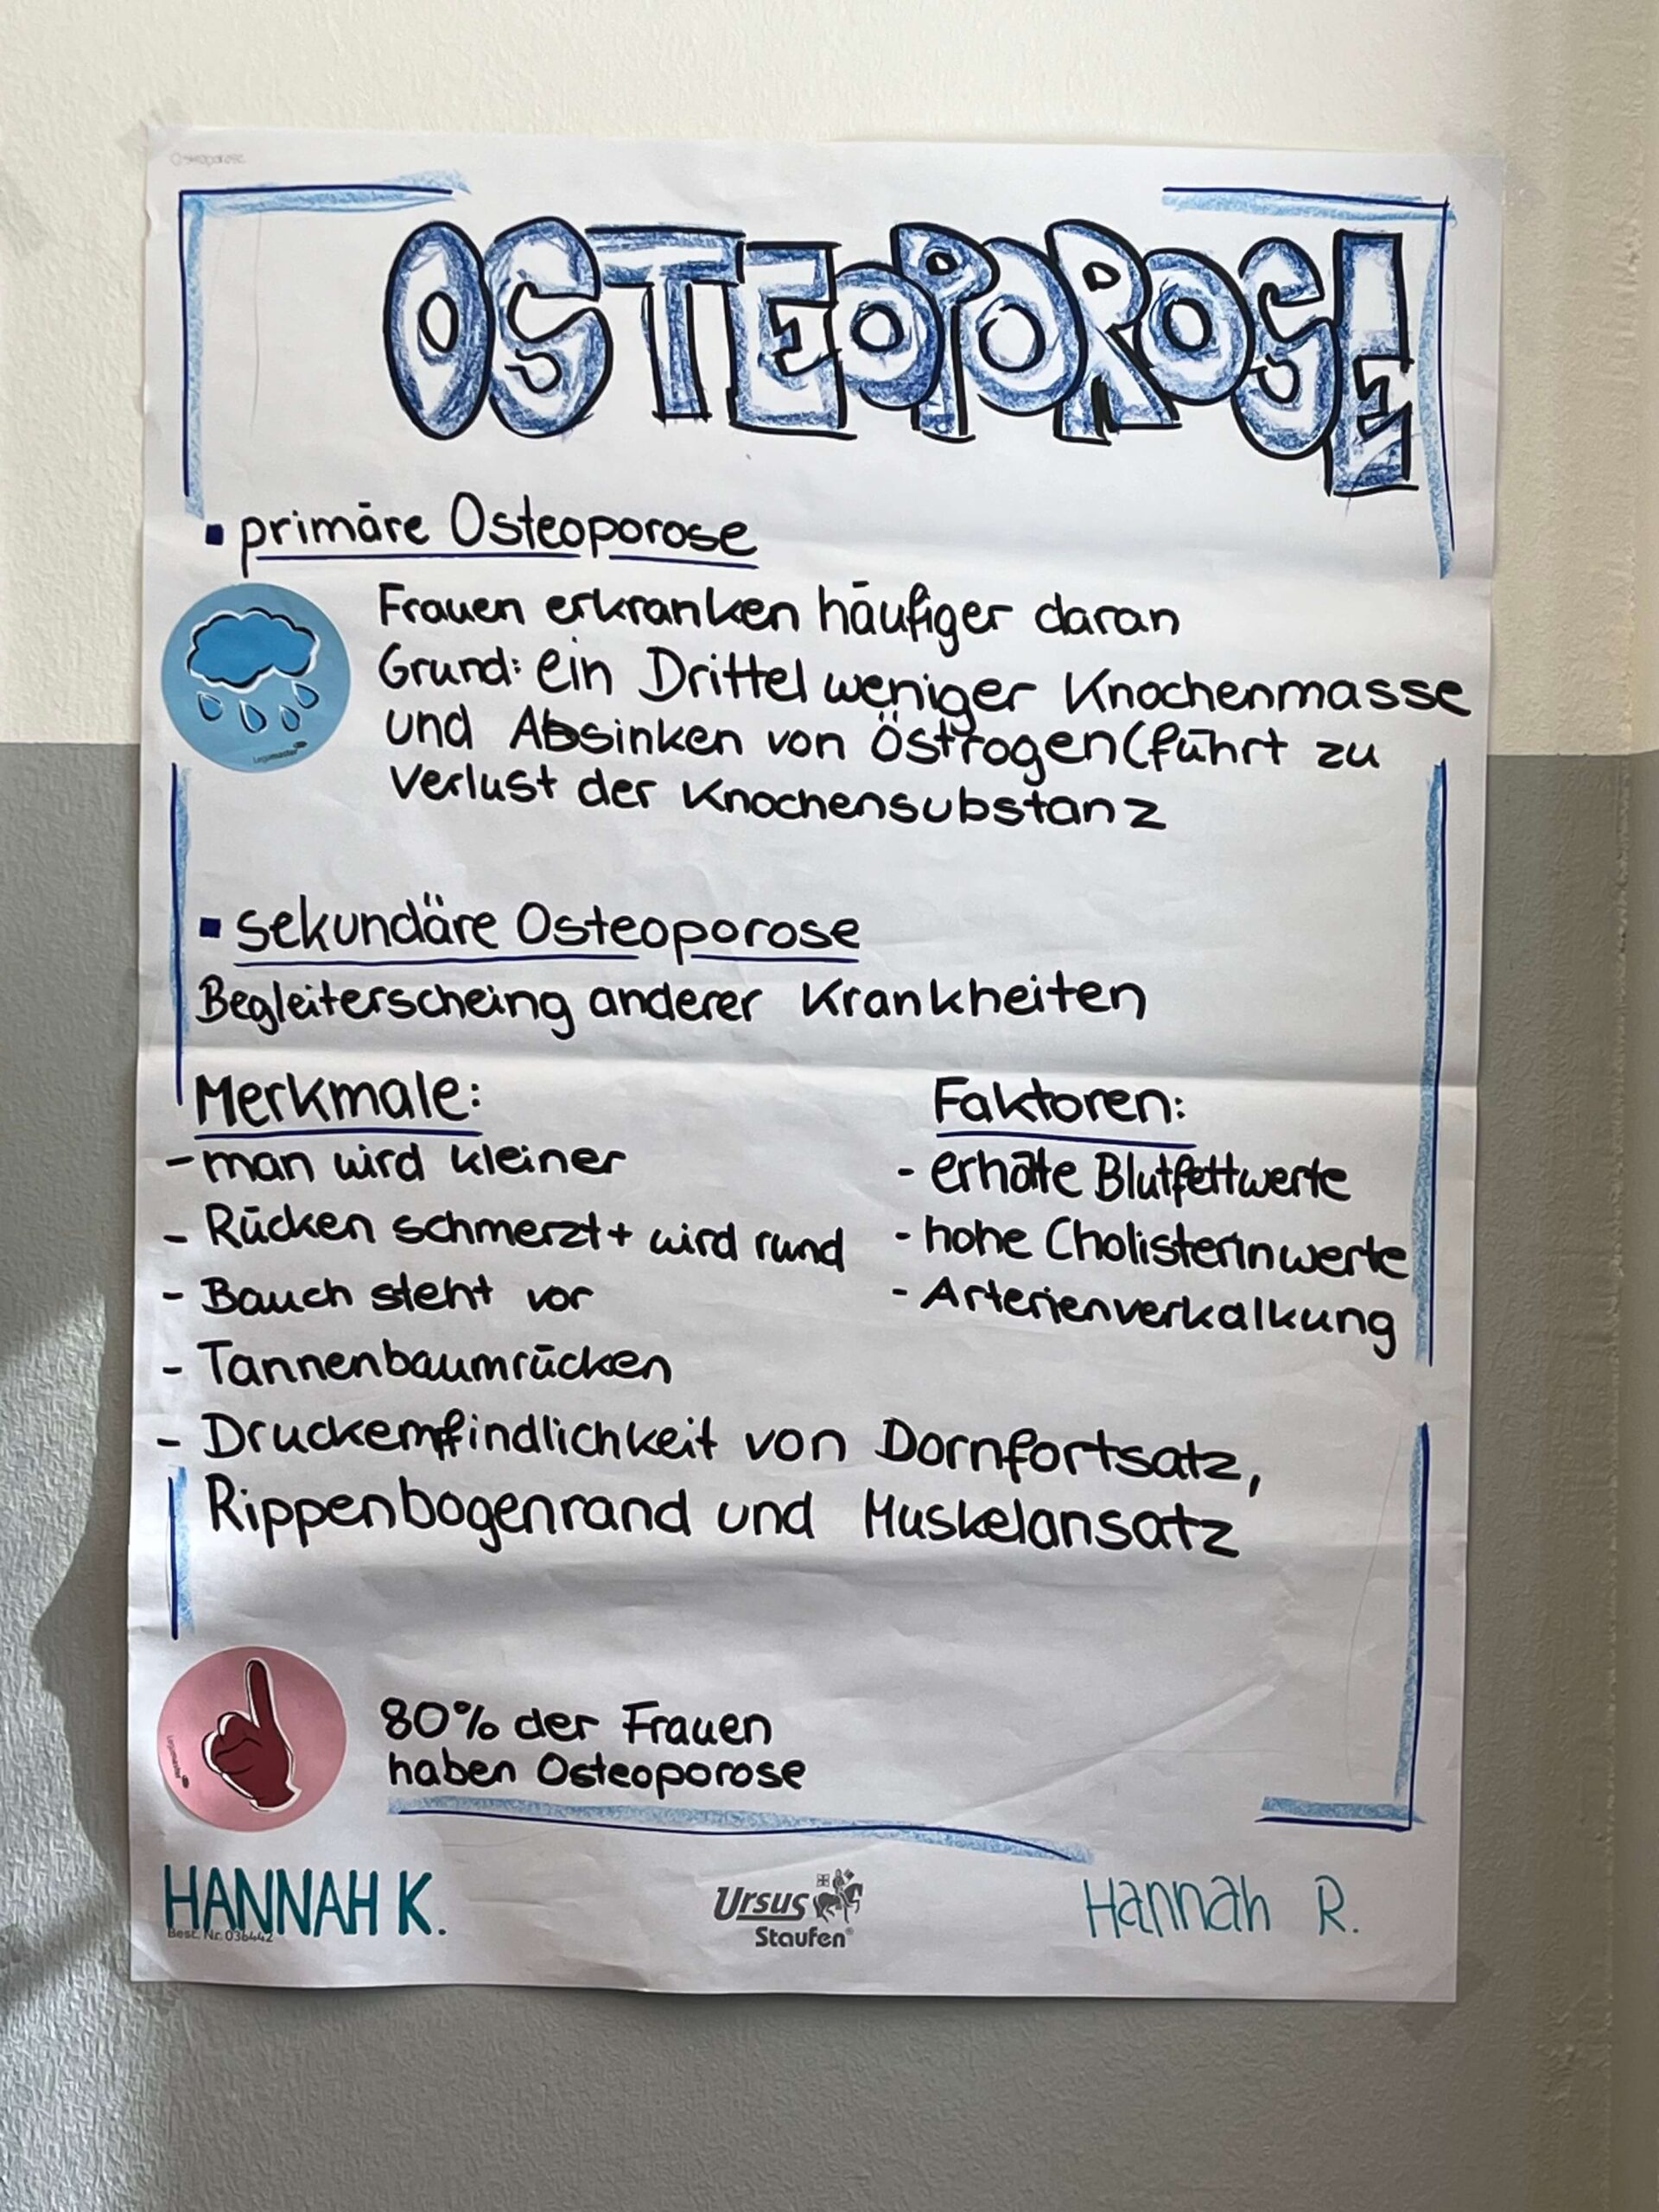 Osteoporose
OSTEOPOROSE
▪ primäre Osteoporose
Frauen erkranken häufiger daran
Grund: ein Drittel weniger Knochenmasse
und Absinken von Östrogen (führt zu
Verlust der Knochensubstanz
▪ sekundäre Osteoporose
Begleiterscheing anderer Krankheiten
Merkmale:
- man wird kleiner
- Rücken schmerzt + wird rund
- Bauch steht vor
- Tannenbaumrücken
- Druckempfindlichkeit von Dornfortsatz,
Rippenbogenrand und Muskelansatz
Faktoren:
- erhöte Blutfettwerte
- hohe Cholisterinwerte
- Arterienverkalkung
80% der Frauen
haben Osteoporose
HANNAH K.
Best. Nr. 036442
Ursus
Staufen®
Hannah R.
Legamaster
Legamaster